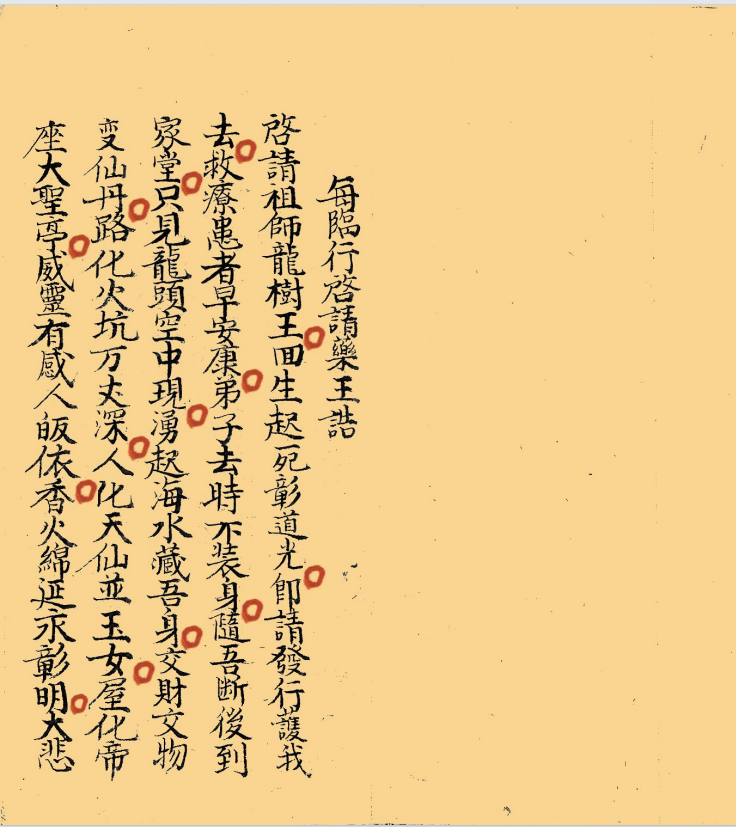 每臨行啓請藥王誥
啓請祖師龍樹王回生起死彰道光即請發行護我
去救療患者早安康弟子去時不裝身隨吾断後到
家堂只見龍頭空中現湧起海水藏吾身交財交物
变仙丹路化火坑万丈深人化天仙並玉女屋化帝
座大聖亭亭威靈有感人皈依香火綿延永彰明大悲